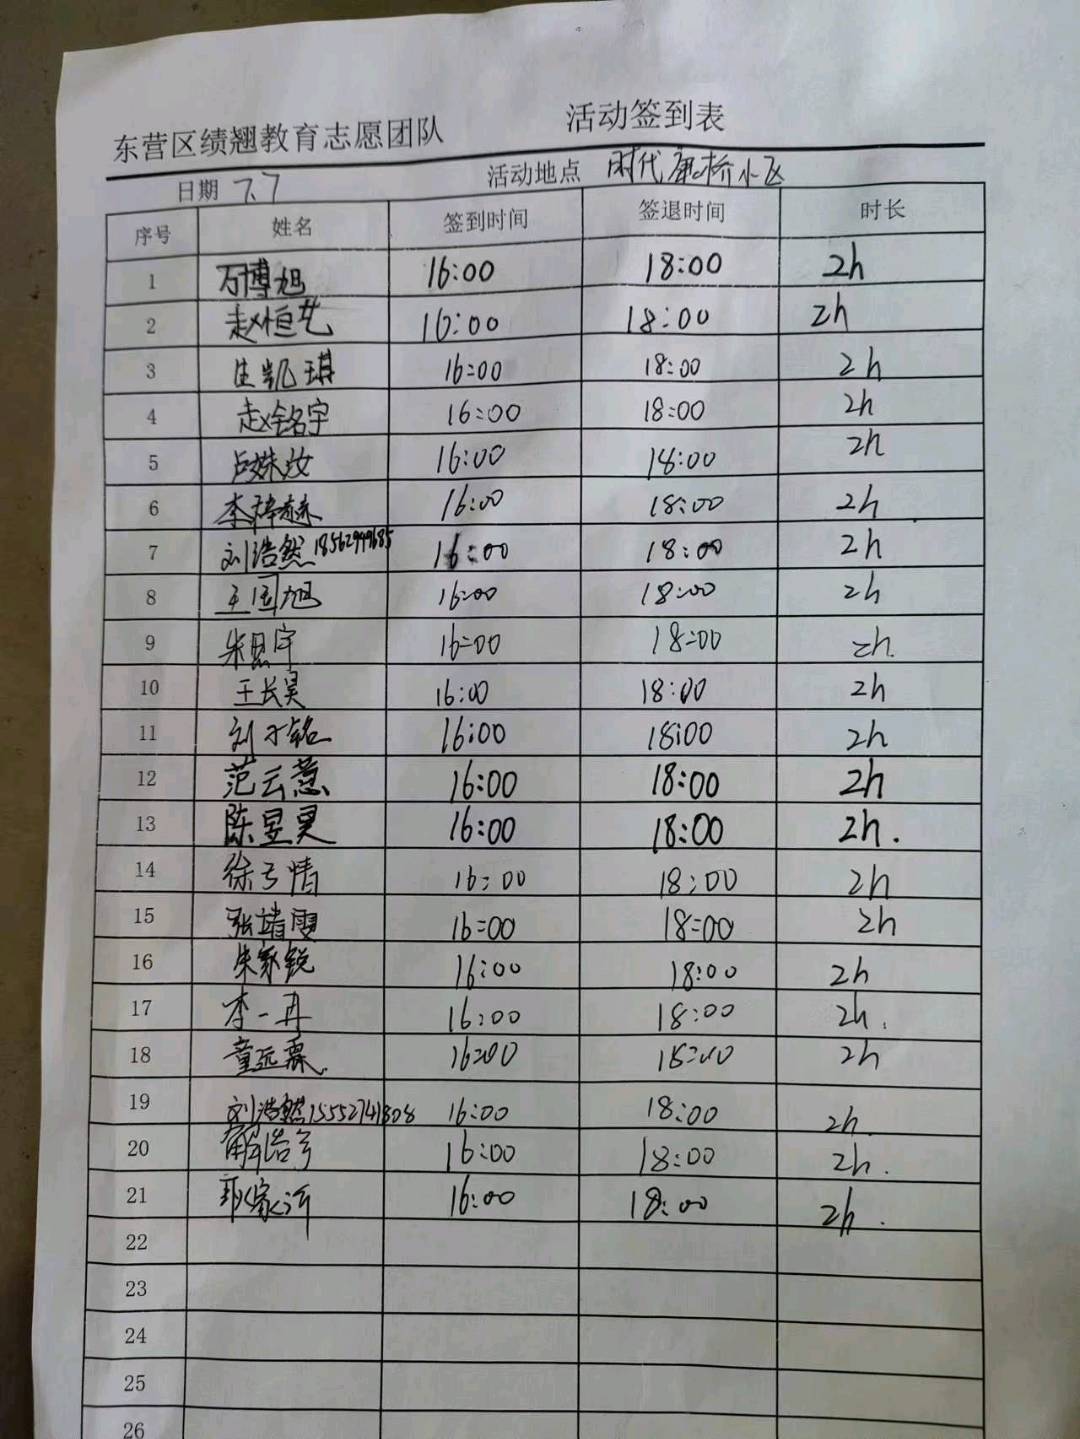 东营区绩翘教育志愿团队 活动签到表
日期 7.7 活动地点 时代康桥小区
序号 姓名 签到时间 签退时间 时长
1 石博旭 16:00 18:00 2h
2 赵恒艺 16:00 18:00 2h
3 生凯琪 16:00 18:00 2h
4 赵铭宇 16:00 18:00 2h
5 16:00 18:00 2h
6 李梓赫 16:00 18:00 2h
7 刘浩然 18562949685 16:00 18:00 2h
8 王国旭 16:00 18:00 2h
9 朱思宇 16:00 18:00 2h.
10 王长昊 16:00 18:00 2h
11 刘才铭 16:00 18:00 2h
12 范云慧 16:00 18:00 2h
13 陈昱昊 16:00 18:00 2h.
14 16:00 18:00 2h
15 张靖雯 16:00 18:00 2h
16 朱家锐 16:00 18:00 2h
17 李一冉 16:00 18:00 2h.
18 童远霖 16:00 18:00 2h
19 刘浩然 15552741808 16:00 18:00 2h.
20 16:00 18:00 2h.
21 16:00 18:00 2h.
22
23
24
25
26